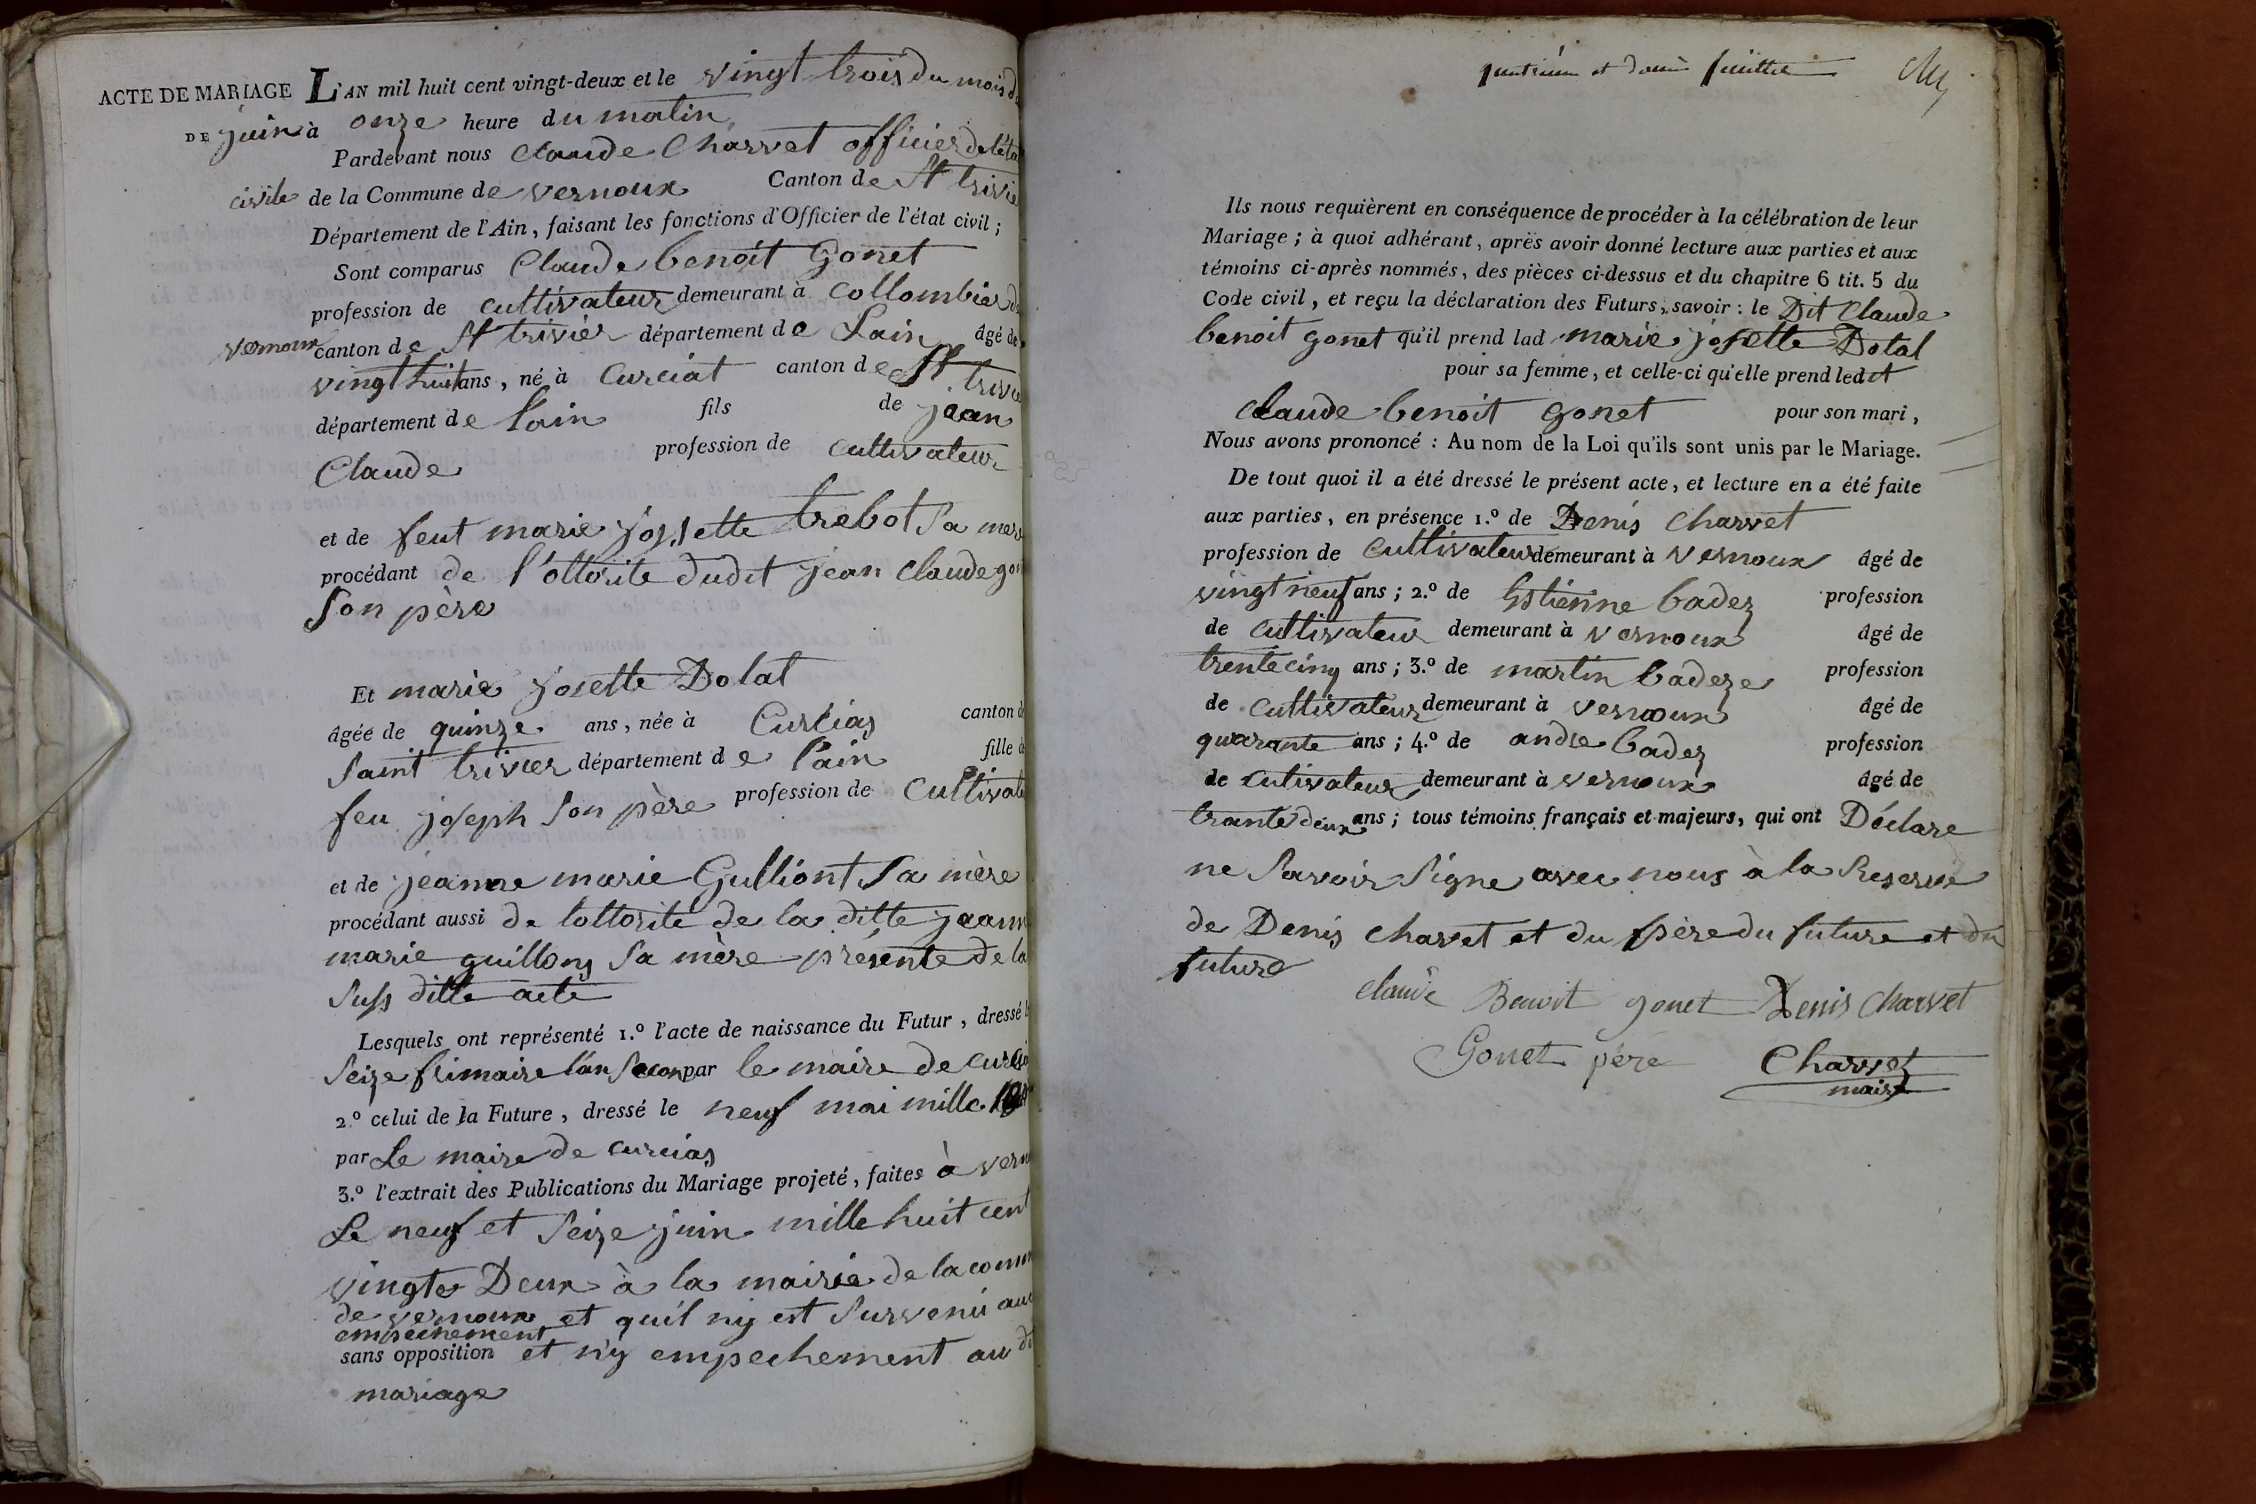 ACTE DE MARIAGE L'AN mil huit cent vingt-deux et le vingt trois du mois
DE juin à onze heure du matin
Pardevant nous Claude Charvet officier de l'éta
civile de la Commune de vernoux Canton de St trivie
Département de l'Ain, faisant les fonctions d'Officier de l'état civil;
Sont comparus Claude benoit Gonet
profession de cultivateur demeurant à Collombier
vernoux canton de St trivier département de Lain âgé de
vingt huit ans, né à Curciat canton de St trivie
département de Lain fils de jean
Claude profession de cultivateur
et de feut marie josette trebot sa mere
procédant de l'ottorite dudit jean Claude gon
son père
Et marie josette Dolat
âgée de quinze ans, née à Curcias canton de
saint trivier département de Lain fille de
feu joseph son père profession de Cultivate
et de jeanne marie Gulliont sa mère
procédant aussi de lottorite de la ditte jeann
marie guillons sa mère présente de la
suss ditte acte
Lesquels ont représenté 1.º l'acte de naissance du Futur, dressé le
seize frimaire l'an secon par le maire de curcia
2.º celui de la Future, dressé le neuf mai mille
par Le maire de curcias
3.º l'extrait des Publications du Mariage projeté, faites à vern
Le neuf et seize juin mille huit cent
vingte Deux à la mairie de la comm
de vernoux et quil ny est survenu auc
empechement
sans opposition et ny empechement au
mariage
feuillet
Ils nous requièrent en conséquence de procéder à la célébration de leur
Mariage; à quoi adhérant, après avoir donné lecture aux parties et aux
témoins ci-après nommés, des pièces ci-dessus et du chapitre 6 tit. 5 du
Code civil, et reçu la déclaration des Futurs, savoir: le Dit Claude
benoit gonet qu'il prend lad marie josette Dolat
pour sa femme, et celle-ci qu'elle prend ledit
claude benoit gonet pour son mari,
Nous avons prononcé: Au nom de la Loi qu'ils sont unis par le Mariage.
De tout quoi il a été dressé le présent acte, et lecture en a été faite
aux parties, en présence 1.º de Denis Charvet
profession de Cultivateur demeurant à vernoux âgé de
vingt neuf ans; 2.º de Estienne badez profession
de cultivateur demeurant à vernoux âgé de
trente cinq ans; 3.º de martin badeze profession
de cultivateur demeurant à vernoux âgé de
quarante ans; 4.º de andre badez profession
de cutivateur demeurant à vernoux âgé de
trante deux ans; tous témoins français et majeurs, qui ont Déclare
ne savoir signe avec nous à la reserve
de Denis charvet et du père du future et du
future
claude Benoit gonet Denis Charvet
Gonet père Charvet
maire